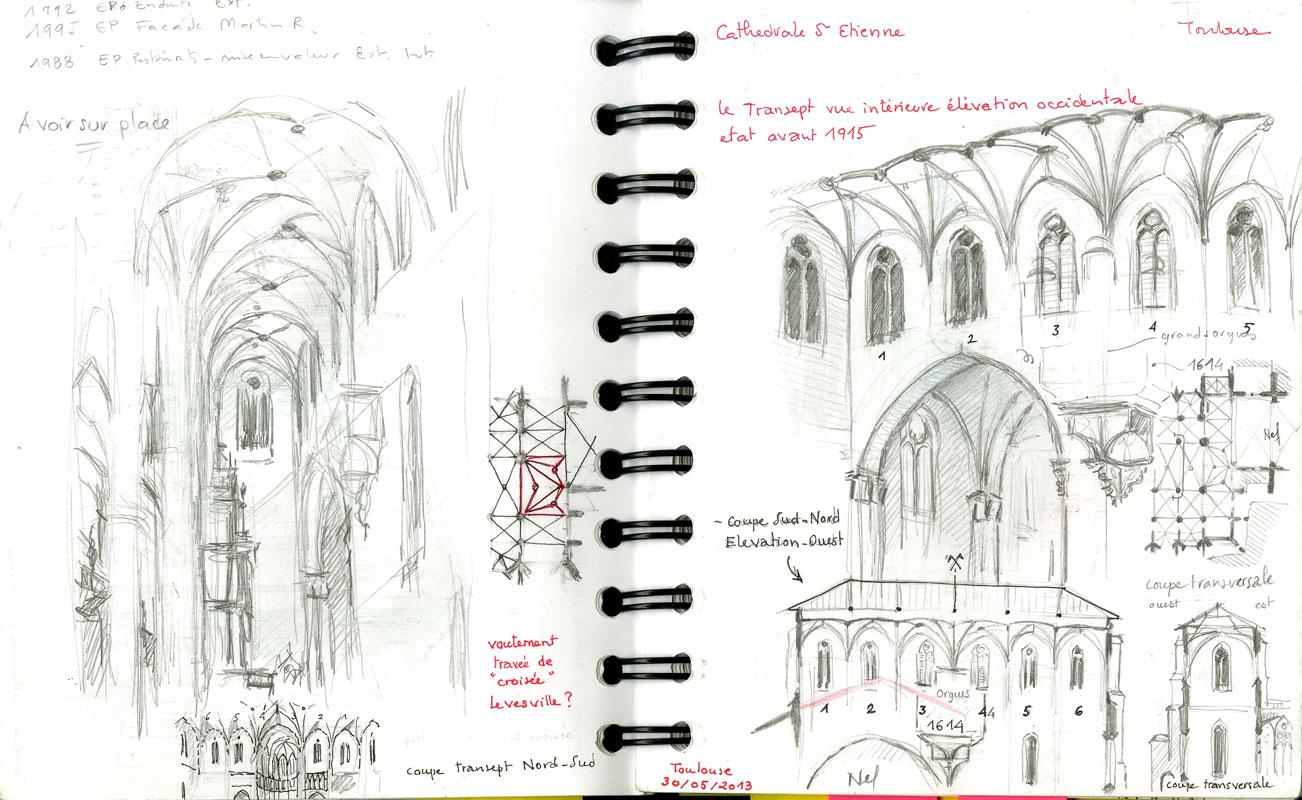 1992 ERD Enduits Ext.
1995 EP Facade Martin R.
1988 EP - mise en valeur Ext. Int.
A voir sur place
voutement
travée de
"croisée"
Levesville ?
6 5 4 2 1
coupe transept Nord-Sud
Cathedrale St Etienne
Toulouse
le Transept vue intérieure élévation occidentale
etat avant 1915
1 2 3 4 5
grandsorgues
1614
Nef
~ coupe Sud-Nord
Elevation-Ouest
coupe transversale
ouest est
Orgues
1 2 3 4 5 6
1614
Nef
coupe transversale
Toulouse
30/05/2013